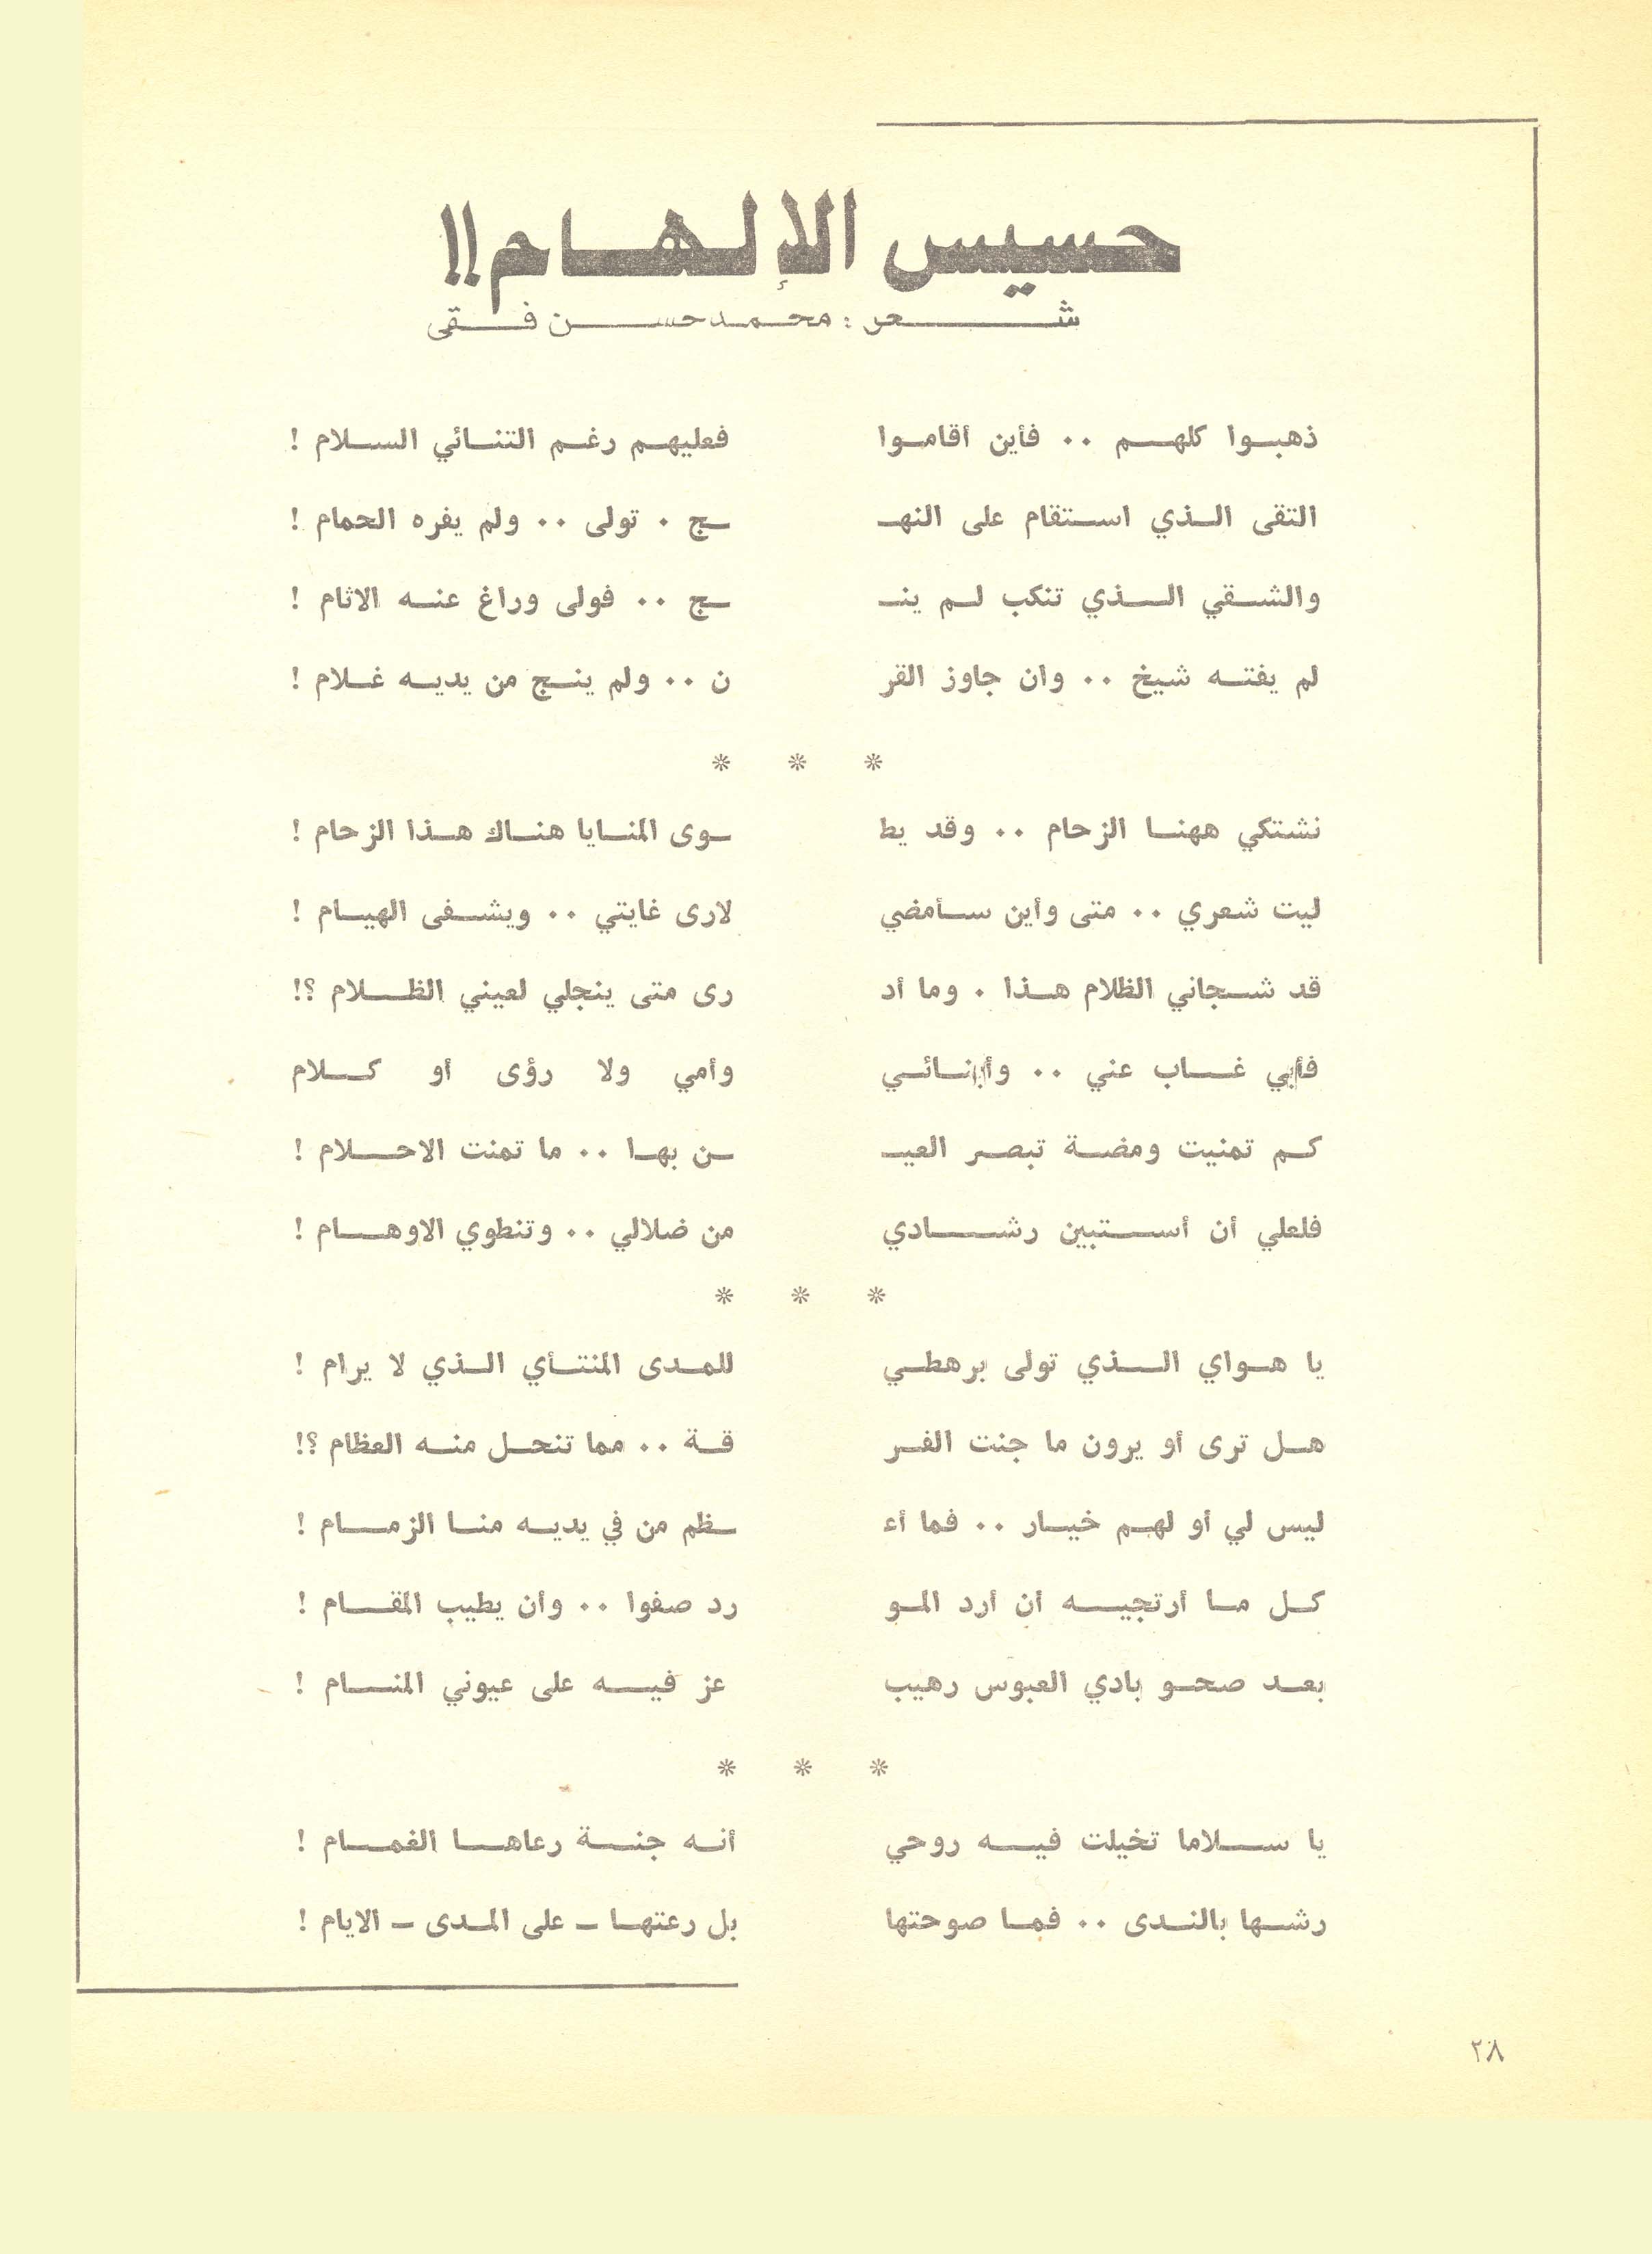 حسيس الإلهام!!
شعر : محمد حسن فقي
ذهبوا كلهم .. فأين أقاموا فعليهم رغم التنائي السلام !
التقى الذي استقام على النهـ ـج . تولى .. ولم يفره الحمام !
والشقي الذي تنكب لم ينـ ـج .. فولى وراغ عنه الاثام !
لم يفته شيخ .. وان جاوز القر ن .. ولم ينج من يديه غلام !
* * *
نشتكي ههنا الزحام .. وقد يط ـوى المنايا هناك هذا الزحام !
ليت شعري .. متى وأين سأمضي لارى غايتي .. ويشفى الهيام !
قد شجاني الظلام هذا . وما أد رى متى ينجلي لعيني الظلام ؟!
فأبي غاب عني .. وأبنائي وأمي ولا رؤى أو كلام
كم تمنيت ومضة تبصر العيـ ـن بها .. ما تمنت الاحلام !
فلعلي أن أستبين رشادي من ضلالي .. وتنطوي الاوهام !
* * *
يا هواي الذي تولى برهطي للمدى المنتأي الذي لا يرام !
هل ترى أو يرون ما جنت الفر قة .. مما تنحل منه العظام ؟!
ليس لي أو لهم خيار .. فما أع ـظم من في يديه منا الزمام !
كل ما أرتجيه أن أرد المو رد صفوا .. وأن يطيب المقام !
بعد صحو بادي العبوس رهيب عز فيه على عيوني المنام !
* * *
يا سلاما تخيلت فيه روحي أنه جنة رعاها الغمام !
رشها بالندى .. فما صوحتها بل رعتها ــ على المدى ــ الايام !
٢٨